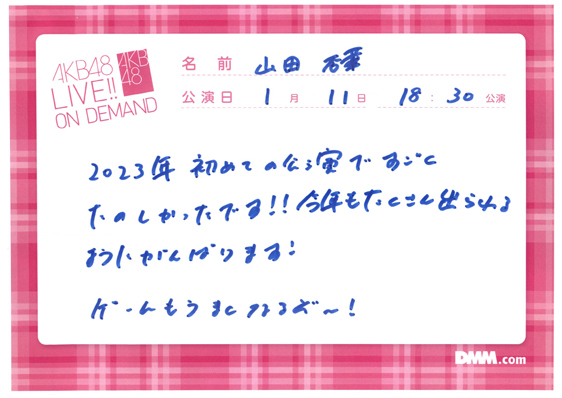 AKB48
LIVE!!
ON DEMAND
AKB
48
名前 山田 杏華
公演日 1月 11日 18:30公演
2023年 初めての公演ですごく
たのしかったです!!今年もたくさん出られる
ようにがんばります!
ゲームもうまくなるぞ〜!
DMM.com